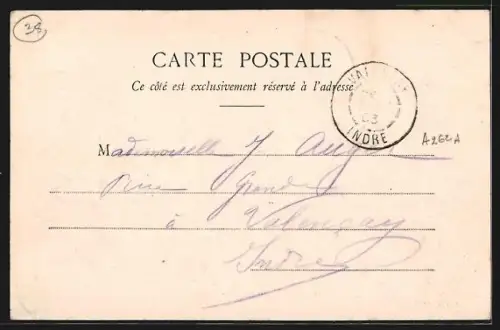 38
CARTE POSTALE
Ce côté est exclusivement réservé à l'adresse
INDRE
A262A
Mademoiselle J Auger
Rue Grande
à Valençay
Indre